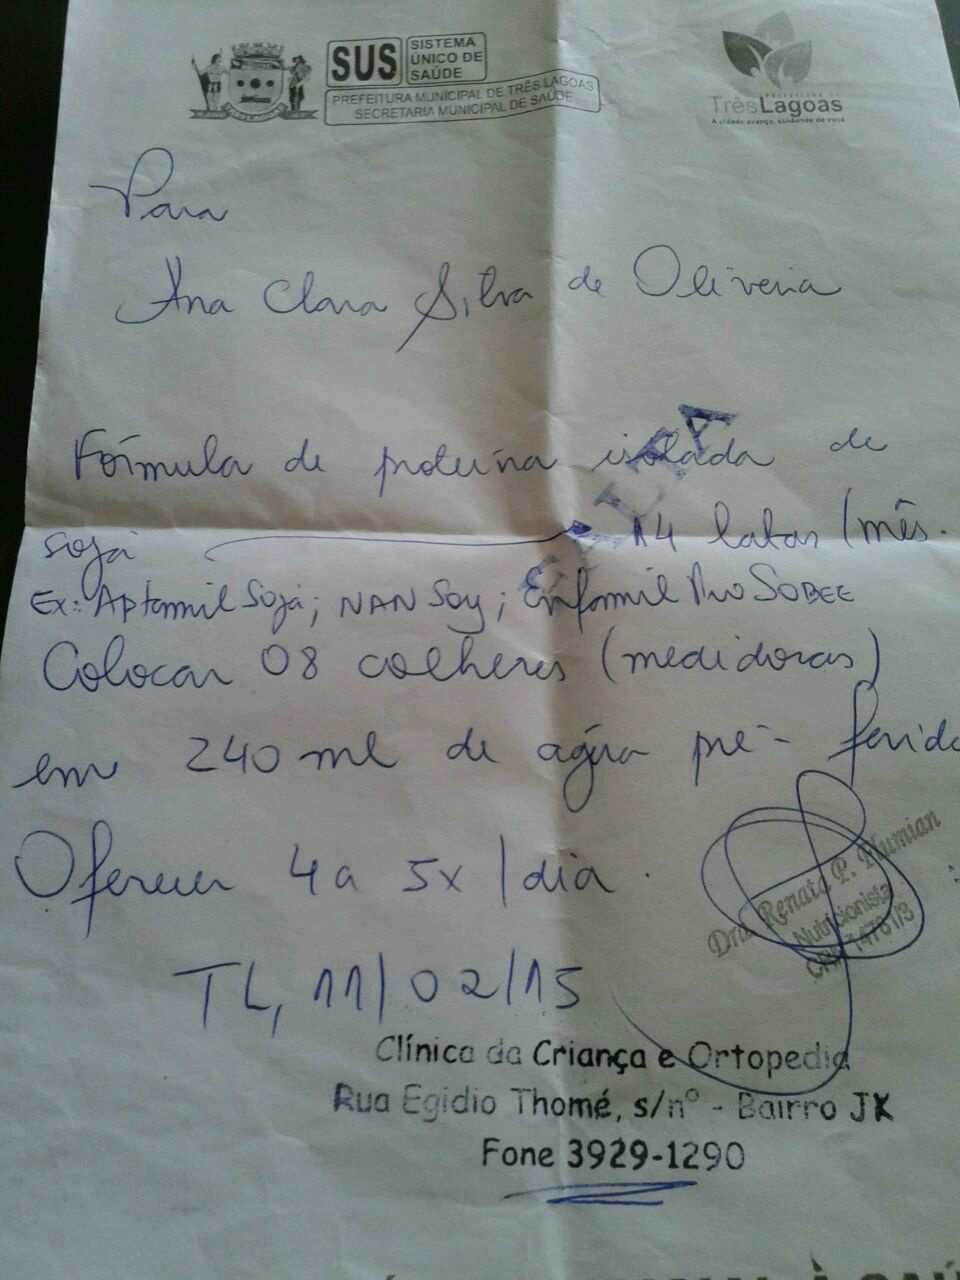 SUS SISTEMA ÚNICO DE SAÚDE
PREFEITURA MUNICIPAL DE TRÊS LAGOAS
SECRETARIA MUNICIPAL DE SAÚDE
PREFEITURA DE
TrêsLagoas
A cidade avança, cuidando de você
Para
Ana Clara Silva de Oliveira
Fórmula de proteína isolada de
soja 14 latas/mês.
FALTA
Ex: Aptamil Soja; NAN Soy; Enfamil ProSOBEE
Colocar 08 colheres (medidoras)
em 240 ml de água pré-fervida
Oferecer 4 a 5x/dia.
Dra. Renata P.
Nutricionista
TL, 11/02/15
Clínica da Criança e Ortopedia
Rua Egidio Thomé, s/nº - Bairro JK
Fone 3929-1290